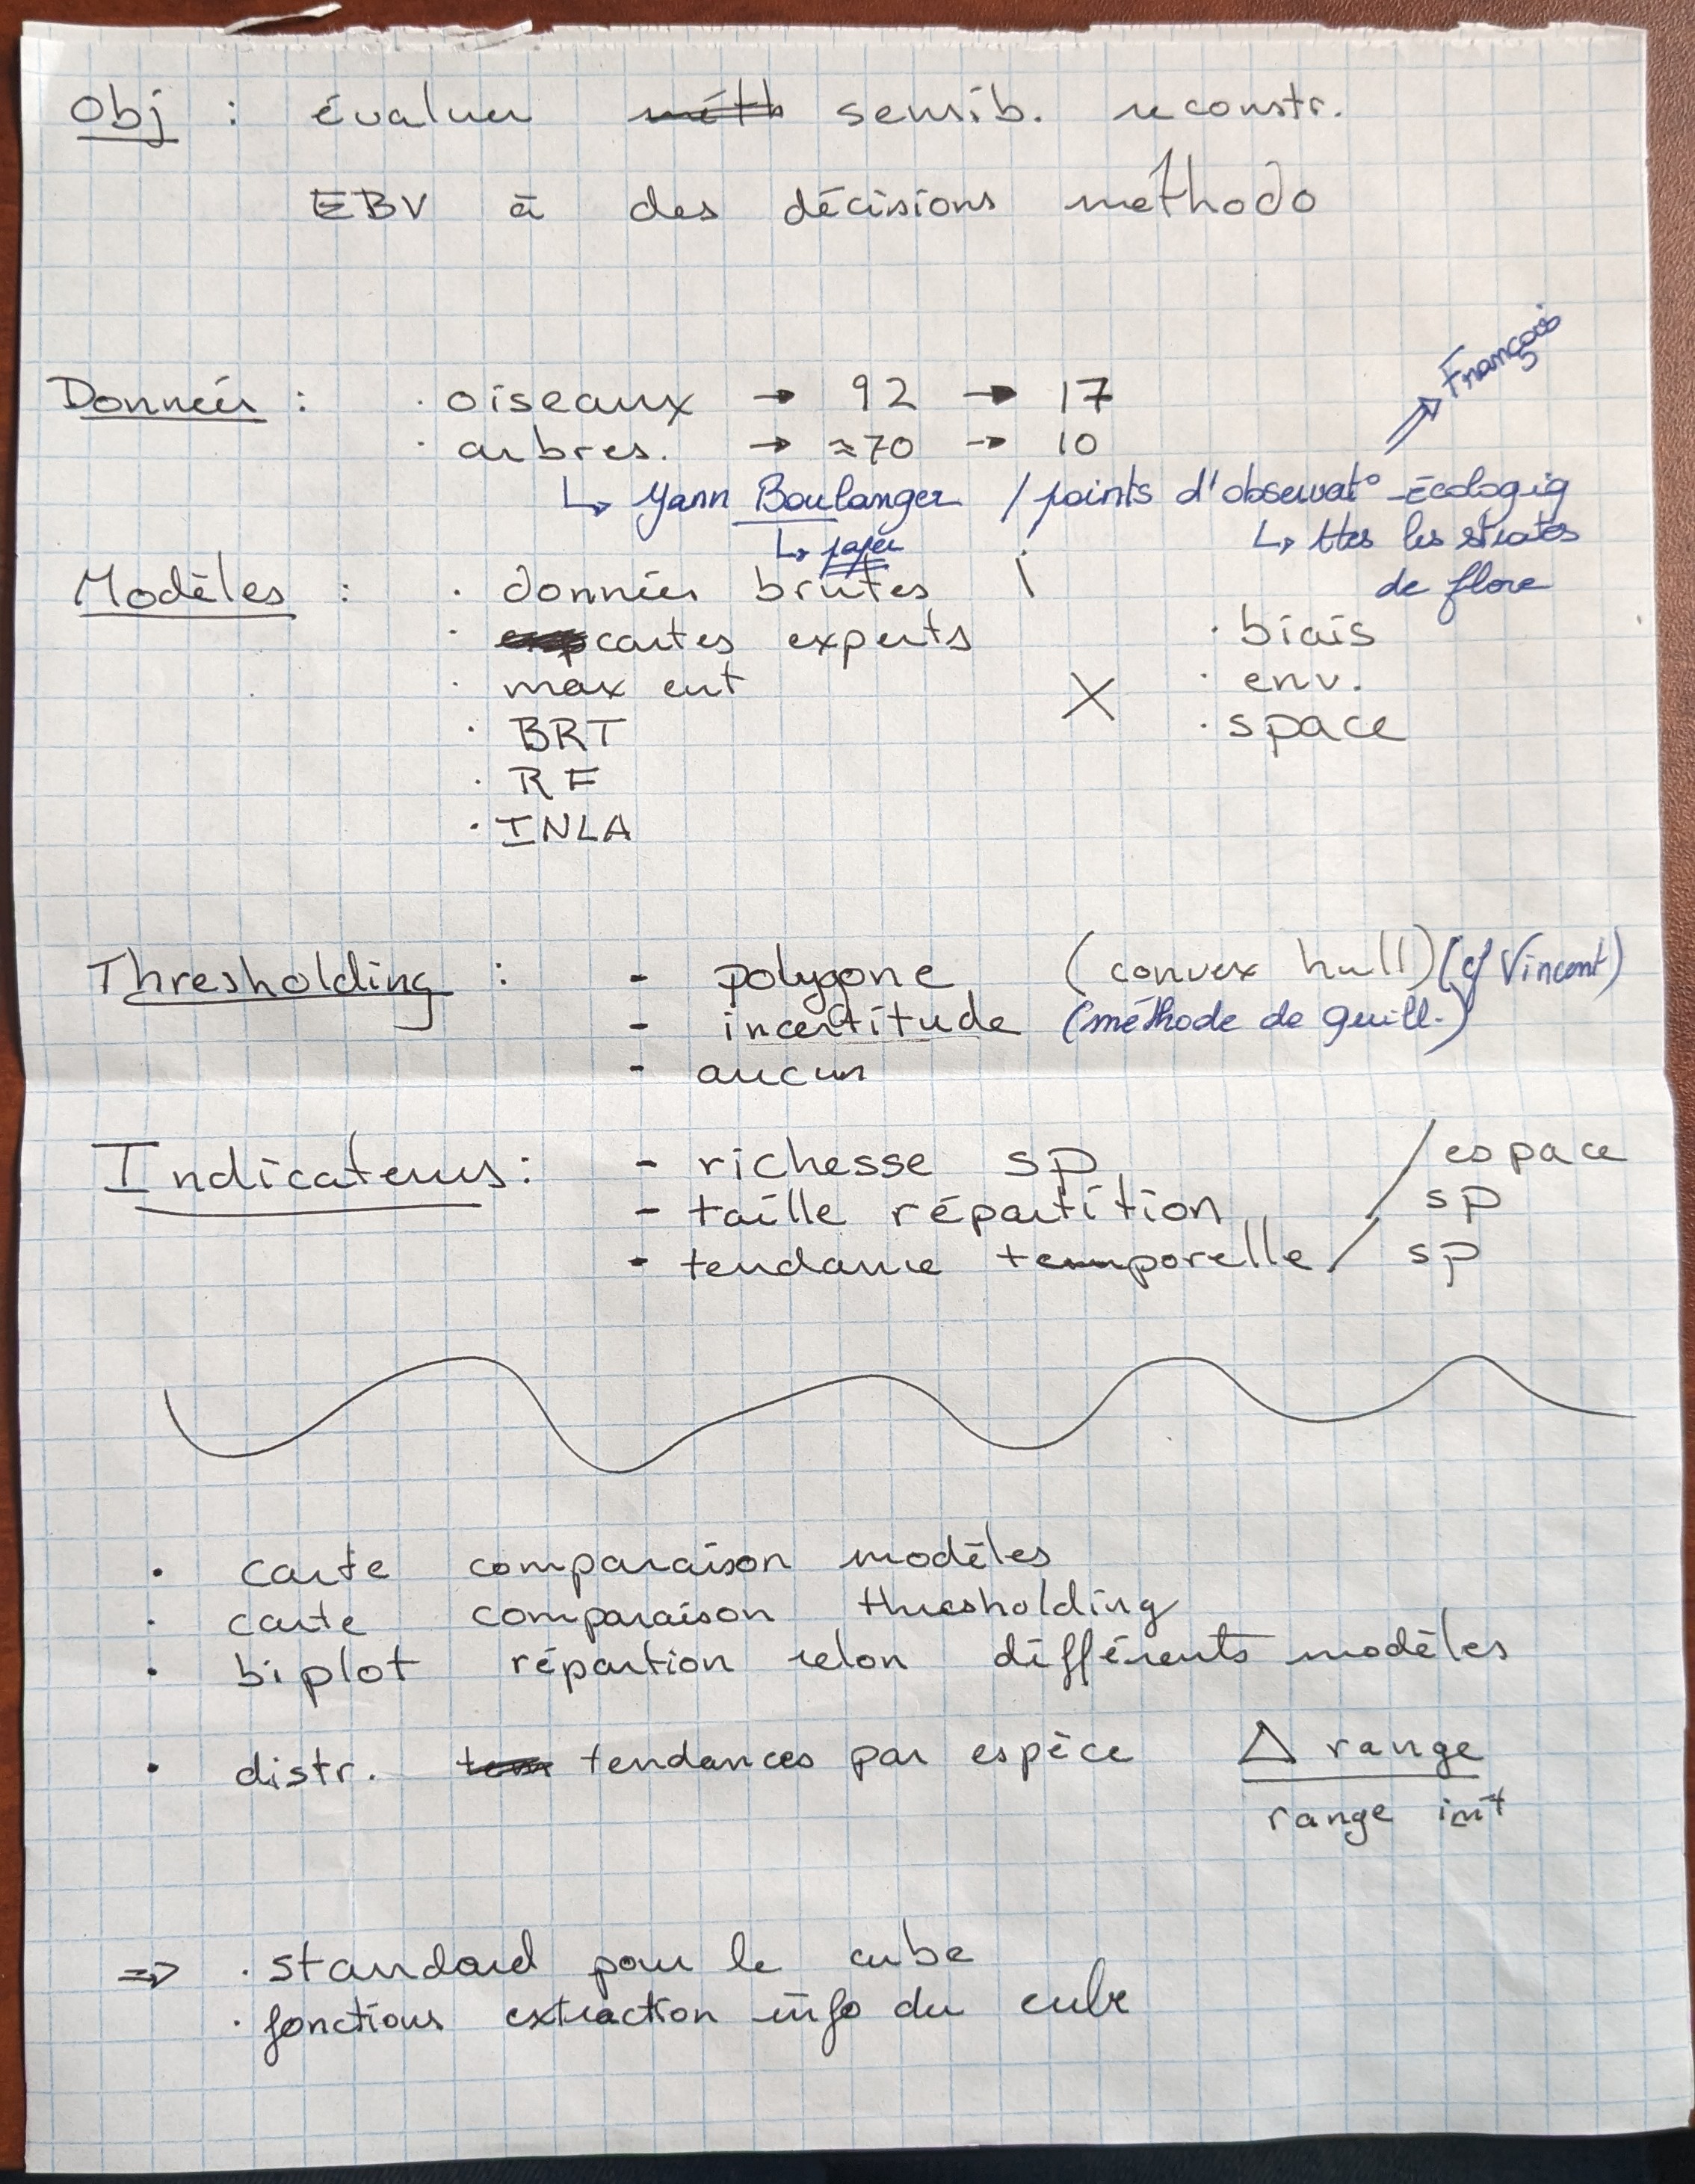 Obj : évaluer sensib. reconstr.
EBV à des décisions méthodo
François
Données : · oiseaux → 92 → 17
· arbres. → ≈70 → 10
↳ Yann Boulanger / points d'observat° écologiq
↳ papier
↳ ttes les strates
de flore
Modèles : · données brutes
· cartes experts
· max ent
· BRT
· RF
· INLA
X
· biais
· env.
· space
Thresholding : - polygone (convex hull) (cf Vincent)
- incertitude (méthode de Guill.)
- aucun
Indicateurs : - richesse sp / espace
- taille répartition / sp
- tendance temporelle / sp
· carte comparaison modèles
· carte comparaison thresholding
· biplot répartion selon différents modèles
· distr. tendances par espèce Δ range
range init
⇒ · standard pour le cube
· fonctions extraction info du cube